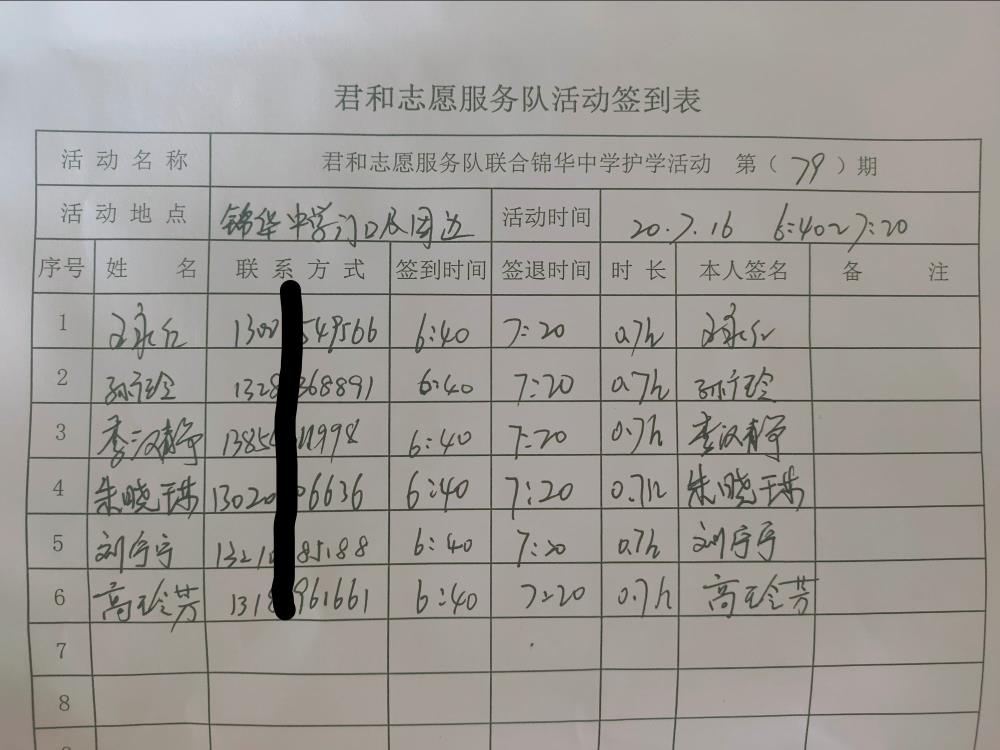 君和志愿服务队活动签到表
活动名称 君和志愿服务队联合锦华中学护学活动 第（79）期
活动地点 锦华中学门口及周边 活动时间 20.7.16 6:40~7:20
序号 姓名 联系方式 签到时间 签退时间 时长 本人签名 备注
1 王永仁 1300 549566 6:40 7:20 0.7h 王永仁
2 孙广玲 1328 368891 6:40 7:20 0.7h 孙广玲
3 李汉静 1385 11998 6:40 7:20 0.7h 李汉静
4 朱晓琳 13020 06636 6:40 7:20 0.7h 朱晓琳
5 刘宁宁 1321 85188 6:40 7:20 0.7h 刘宁宁
6 高玲芳 1318 961661 6:40 7:20 0.7h 高玲芳
7
8